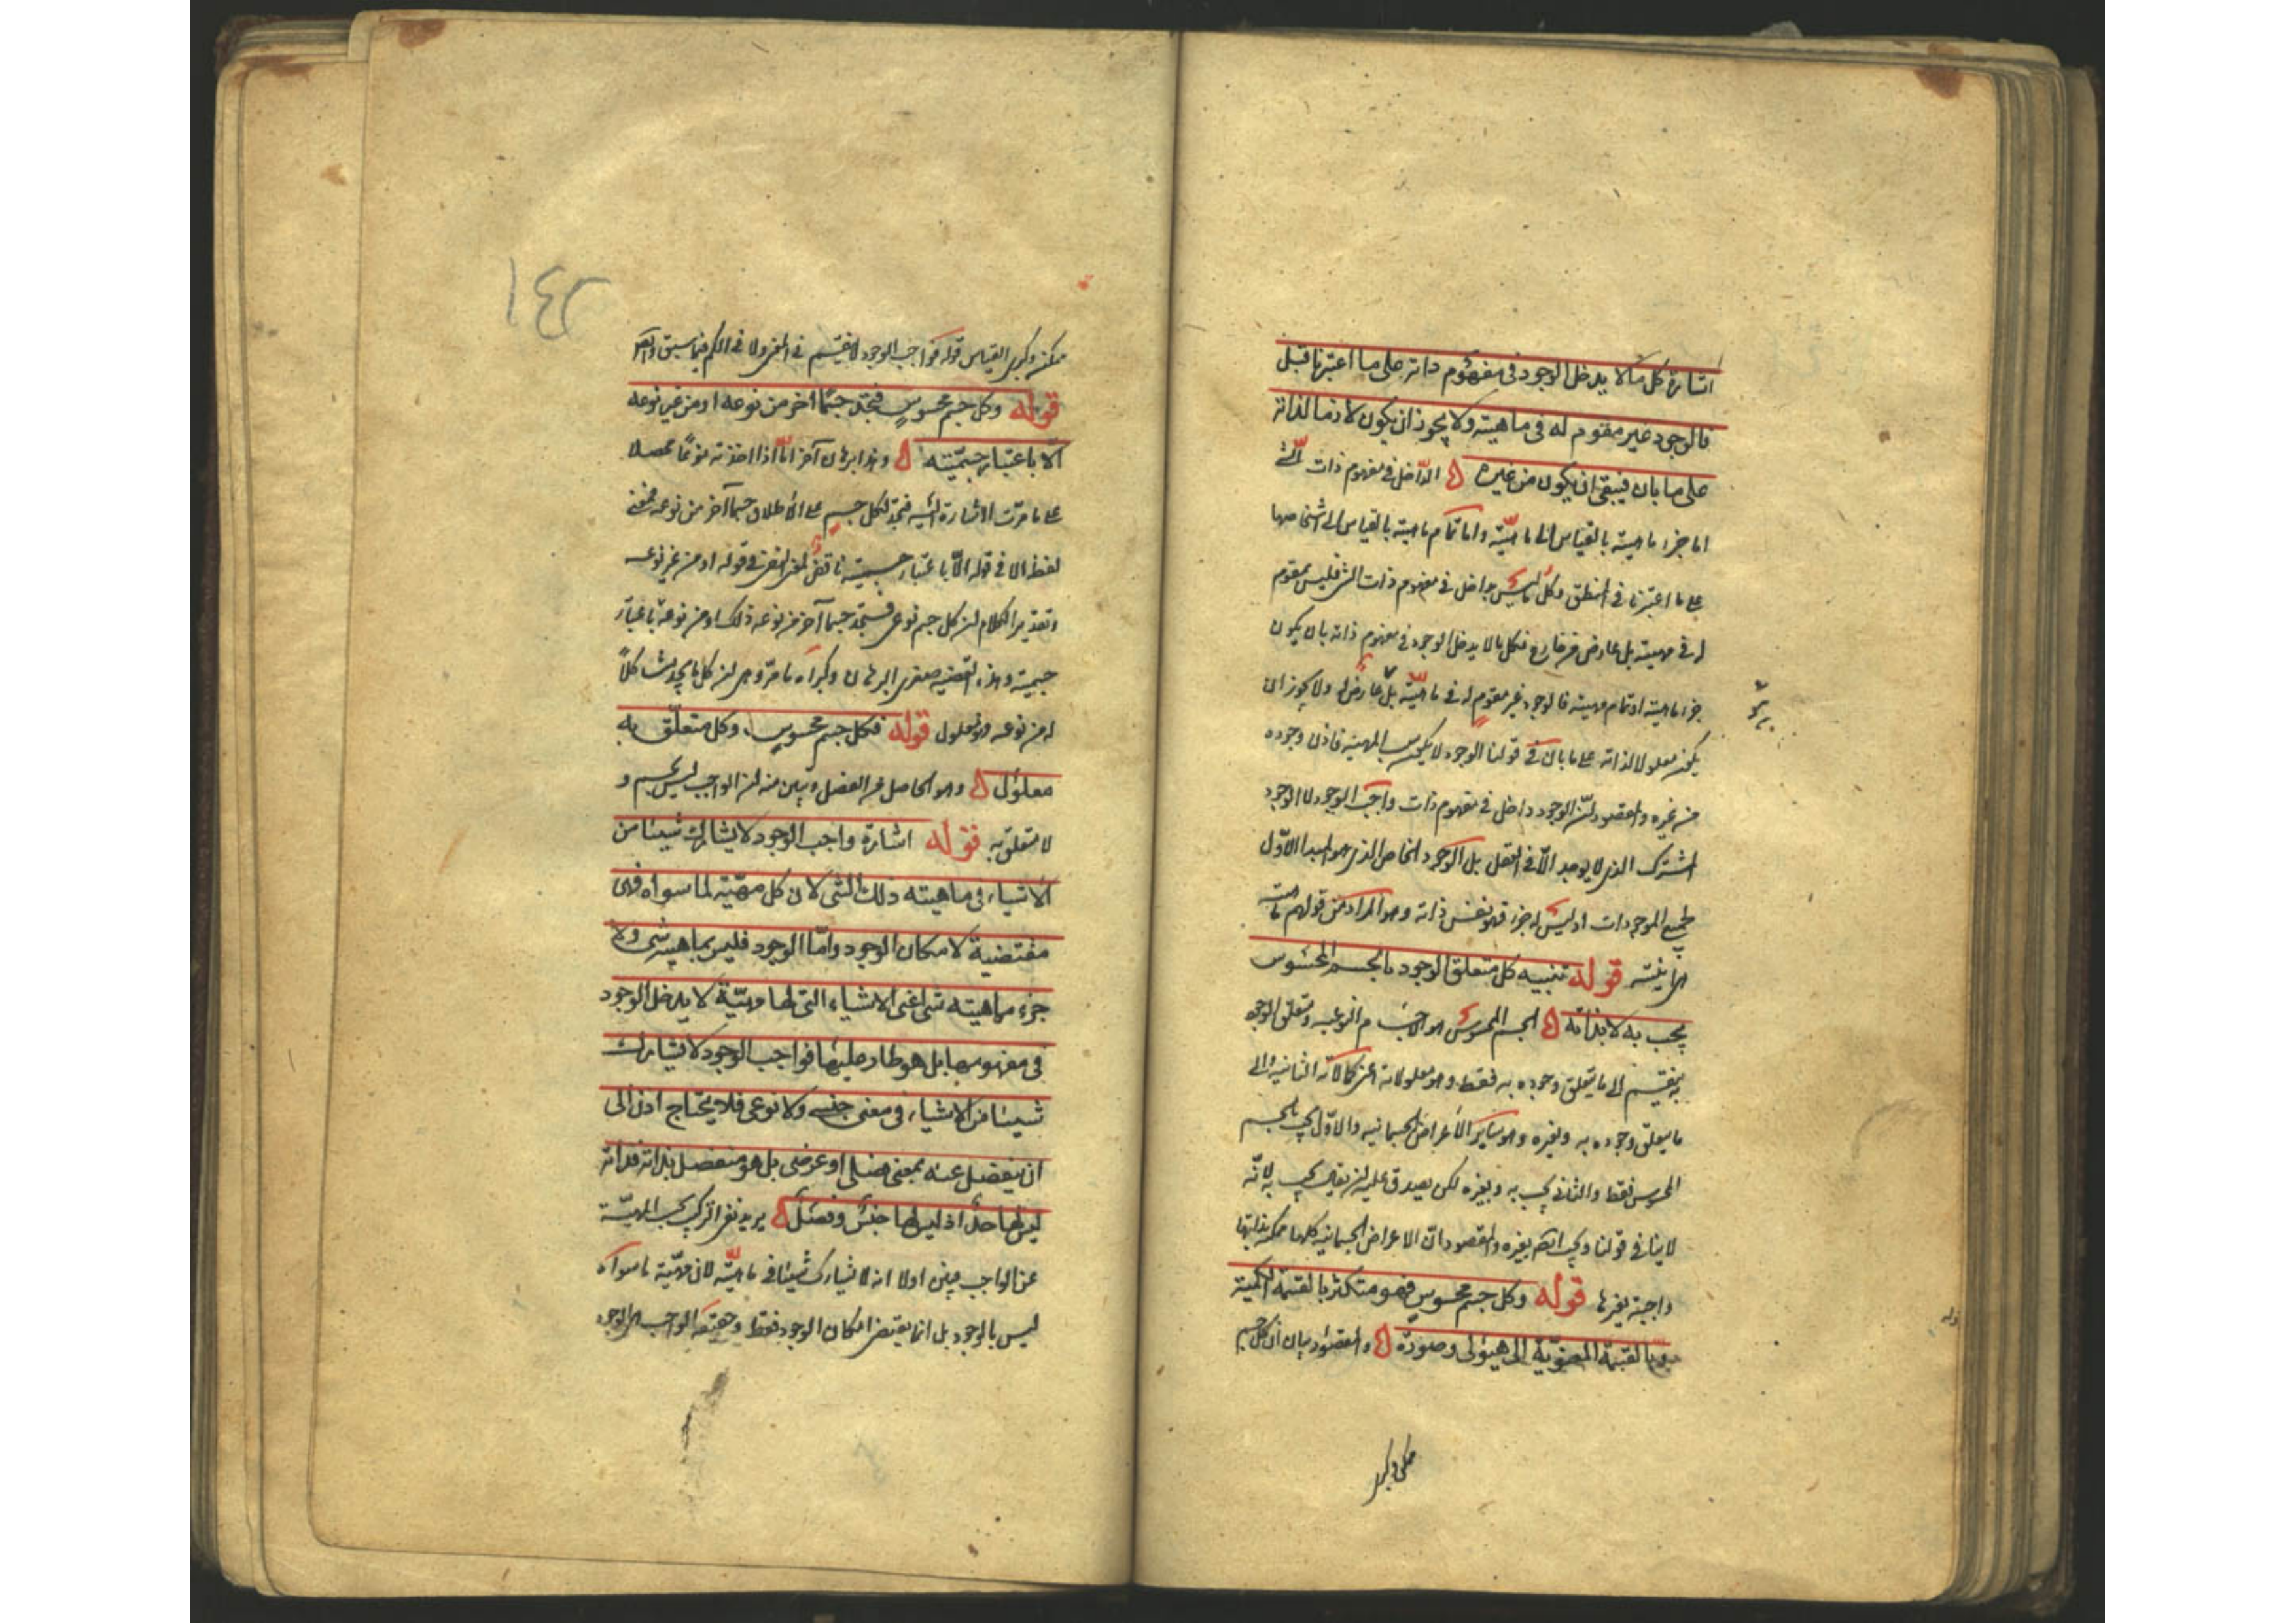 اشارة كل ما لا يدخل الوجود فى مفهوم ذاته على ما اعتبرنا قبل
فالوجود غير مقوم له فى ماهيته ولا يجوز ان يكون لازما لذاته
على ما بان فيبقى ان يكون من غيره الداخل فى مفهوم ذات الشئ
اما جزء ماهيته بالقياس الى ماهيته واما تمام ماهيته بالقياس الى اشخاصها
على ما اعتبرنا فى المنطق وكل ما ليس بداخل فى مفهوم ذات الشئ فليس بمقوم
له فى مهيته بل عارض من خارج فكل ما لا يدخل الوجود فى مفهوم ذاته بان يكون
جزء ماهيته او تمام مهيته فالوجود غير مقوم له فى ماهيته بل عارض له ولا يجوز ان
يكون معلولا لذاته على ما بان فى قولنا الوجود لا يكون بسبب المهية فاذن وجوده
من غيره والمقصود ان الوجود داخل فى مفهوم ذات واجب الوجود لا الوجود
المشترك الذى لا يوجد الا فى العقل بل الوجود الخاص الذى هو المبدا الاول
لجميع الموجودات اذ ليس له جزء فهو نفس ذاته وهو المراد من قولهم ماهيته
هى انيته قوله تنبيه كل متعلق الوجود بالجسم المحسوس
يجب به لا بذاته الجسم المحسوس هو الاجسام النوعية ومتعلق الوجود
به ينقسم الى ما يتعلق وجوده به فقط وهو معلولاته اعنى كمالاته الثانية والى
ما يتعلق وجوده به وبغيره وهو ساير الاعراض الجسمانية والاول يجب بالجسم
المحسوس فقط والثانى يجب به وبغيره لكن يصدق عليه ان يقال يجب به لانه
لا ينافى قولنا ويجب ايضا بغيره والمقصود ان الاعراض الجسمانية كلها ممكنة بذاتها
واجبة بغيرها قوله وكل جسم محسوس فهو متكثر بالقسمة الكمية
وبالقسمة المعنوية الى هيولى وصورة والمقصود بيان ان كل جسم
ممكن وكبرى
١٤٢
ممكن وكبرى القياس قوله فواجب الوجود لا ينقسم فى المعنى ولا فى الكم فيما سبق
قوله وكل جسم محسوس فتجد جسما اخر من نوعه او من غير نوعه
الا باعتبار جسميته وهذا برهان آخر
على ما مرت الاشارة اليه فتجد لكل جسم على الاطلاق جسما آخر من نوعه فمعنى
لفظة الا فى قوله الا باعتبار جسميته ناقض لمعنى النفى فى قوله او من غير نوعه
وتقدير الكلام ان كل جسم نوعى فستجد جسما آخر من نوعه ذلك او من نوعه باعتبار
جسميته وهذه القضية صغرى البرهان وكبراه ما مر وهى ان كل ما يجد مشاكلا
له من نوعه فهو معلول قوله فكل جسم محسوس وكل متعلق به
معلول وهو الحاصل من الفصل وتبين منه ان الواجب ليس بجسم و
لا متعلق به قوله اشارة واجب الوجود لا يشارك شيئا من
الاشياء فى ماهيته ذلك الشئ لان كل مهية لما سواه فهى
مقتضية لامكان الوجود واما الوجود فليس بماهية شئ ولا
جزء ماهيته شئ اعنى الاشياء التى لها مهية لا يدخل الوجود
فى مفهومها بل هو طار عليها فواجب الوجود لا يشارك
شيئا من الاشياء فى معنى جنسى ولا نوعى فلا يحتاج اذن الى
ان ينفصل عنه بمعنى فصلى او عرضى بل هو منفصل بذاته فذاته
ليس لها حد اذ ليس لها جنس وفصل يريد نفى التركيب بحسب المهية
عن الواجب فبين اولا انه لا يشارك شيئا فى ماهيته لان مهية ما سواه
ليس بالوجود بل انما يقتضى امكان الوجود فقط وحقيقة الواجب هى الوجود